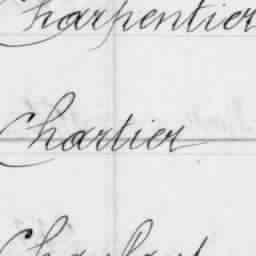 Charpentier
Chartier